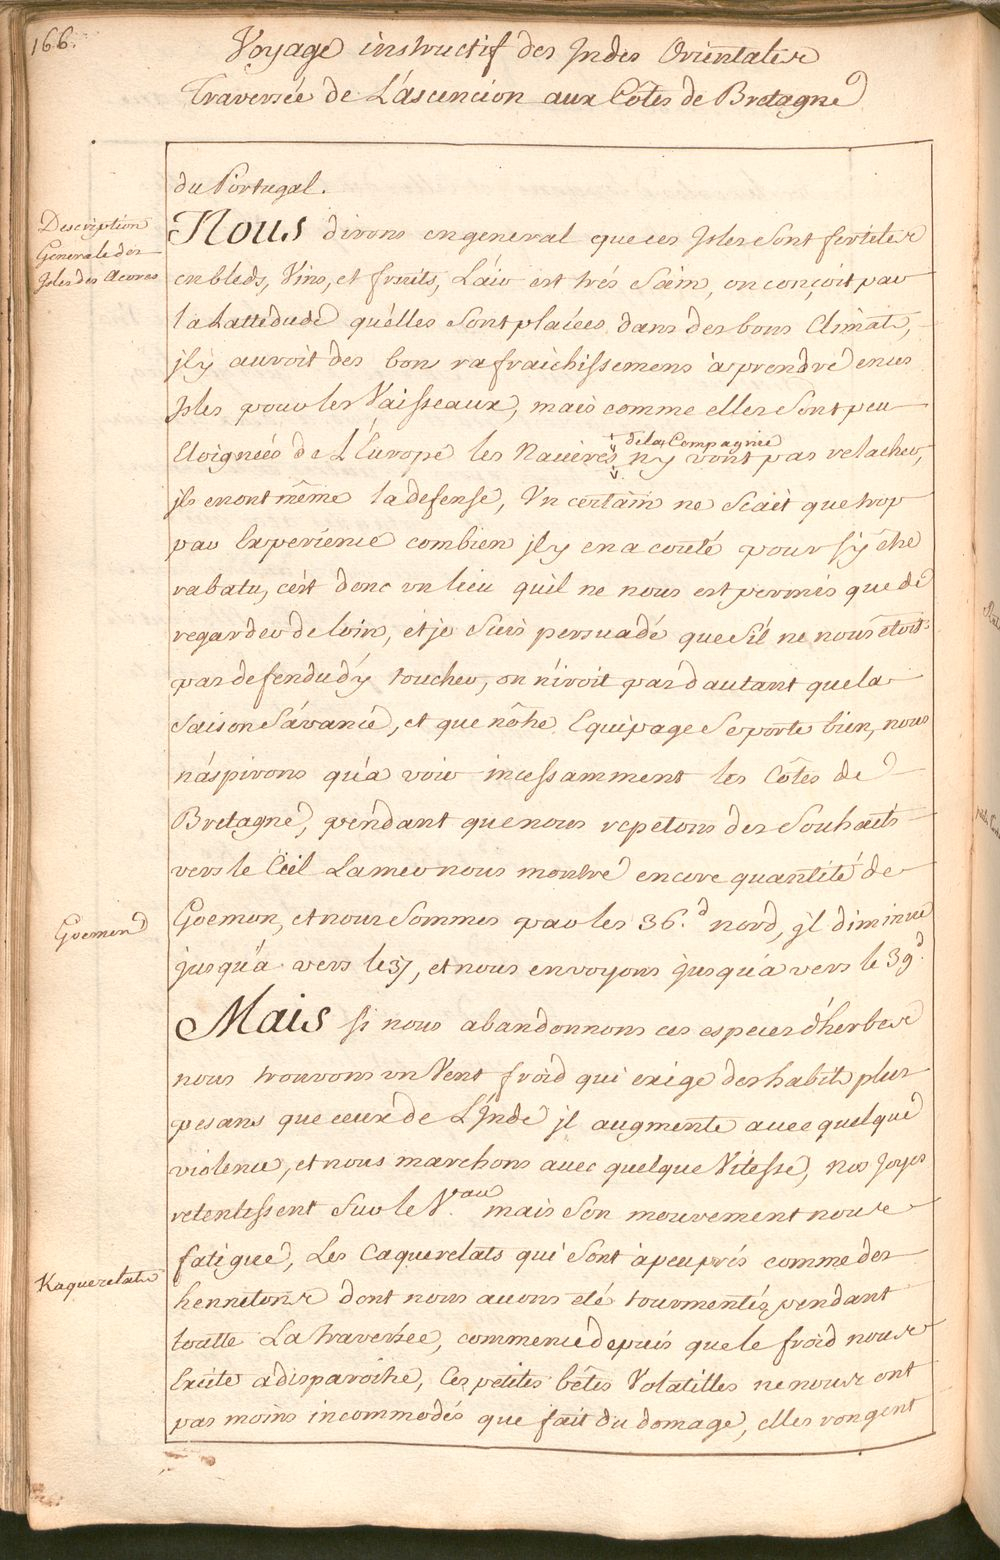 166.
Voyage instructif des Indes Orientales
Traversée de L'ascencion aux Côtes de Bretagne
du Portugal.
Description
Generale des
Isles des Acores
Nous dirons en general que ces Isles sont fertiles
en bleds, Vins, et fruits, L'air est trés Sain, on conçoit par
la Lattedude qu'elles sont placées dans des bons Climats,
jl y auroit des bons rafraichissemens à prendre en ces
Isles pour les Vaisseaux, mais comme elles sont peu
Eloignées de L'Europe les Navires de la Compagnie n'y vont pas relacher,
jls en ont même la defense, Un certain ne Scait que trop
par Experience combien jl y en a couté pour s'y être
rabatu, c'est donc un lieu qu'il ne nous est permis que de
regarder de loin, et je suis persuadé que s'il ne nous étoit
pas defendu d'y toucher, on n'iroit pas d'autant que la
Saison S'avance, et que nôtre Equipage Se porte bien, nous
n'aspirons qu'a voir incessamment les Côtes de
Bretagne, pendant que nous repetons des Souhaits
vers le Ciel La mer nous montre encore quantité de
Goemon
Goemon, et nous Sommes par les 36.d nord, jl diminue
jusqu'a vers le 37, et nous en voyons jusqu'a vers le 39d
Mais si nous abandonnons ces especes d'herbes
nous trouvons un Vent froid qui exige des habits plus
pesans que ceux de L'Inde jl augmente avec quelque
violence, et nous marchons avec quelque Vitesse, nos Joyes
retentissent Sur le V.au mais Son mouvement nous
fatigue, Les Caquerelats qui Sont à peu prés comme des
Kaquerelats
hennetons dont nous avons eté tourmentés pendant
toutte La traversée, commence depuis que le froid nous
Excite a disparoitre, Ces petites bêtes Volatilles ne nous ont
pas moins incommodés que fait du domage, elles rongent